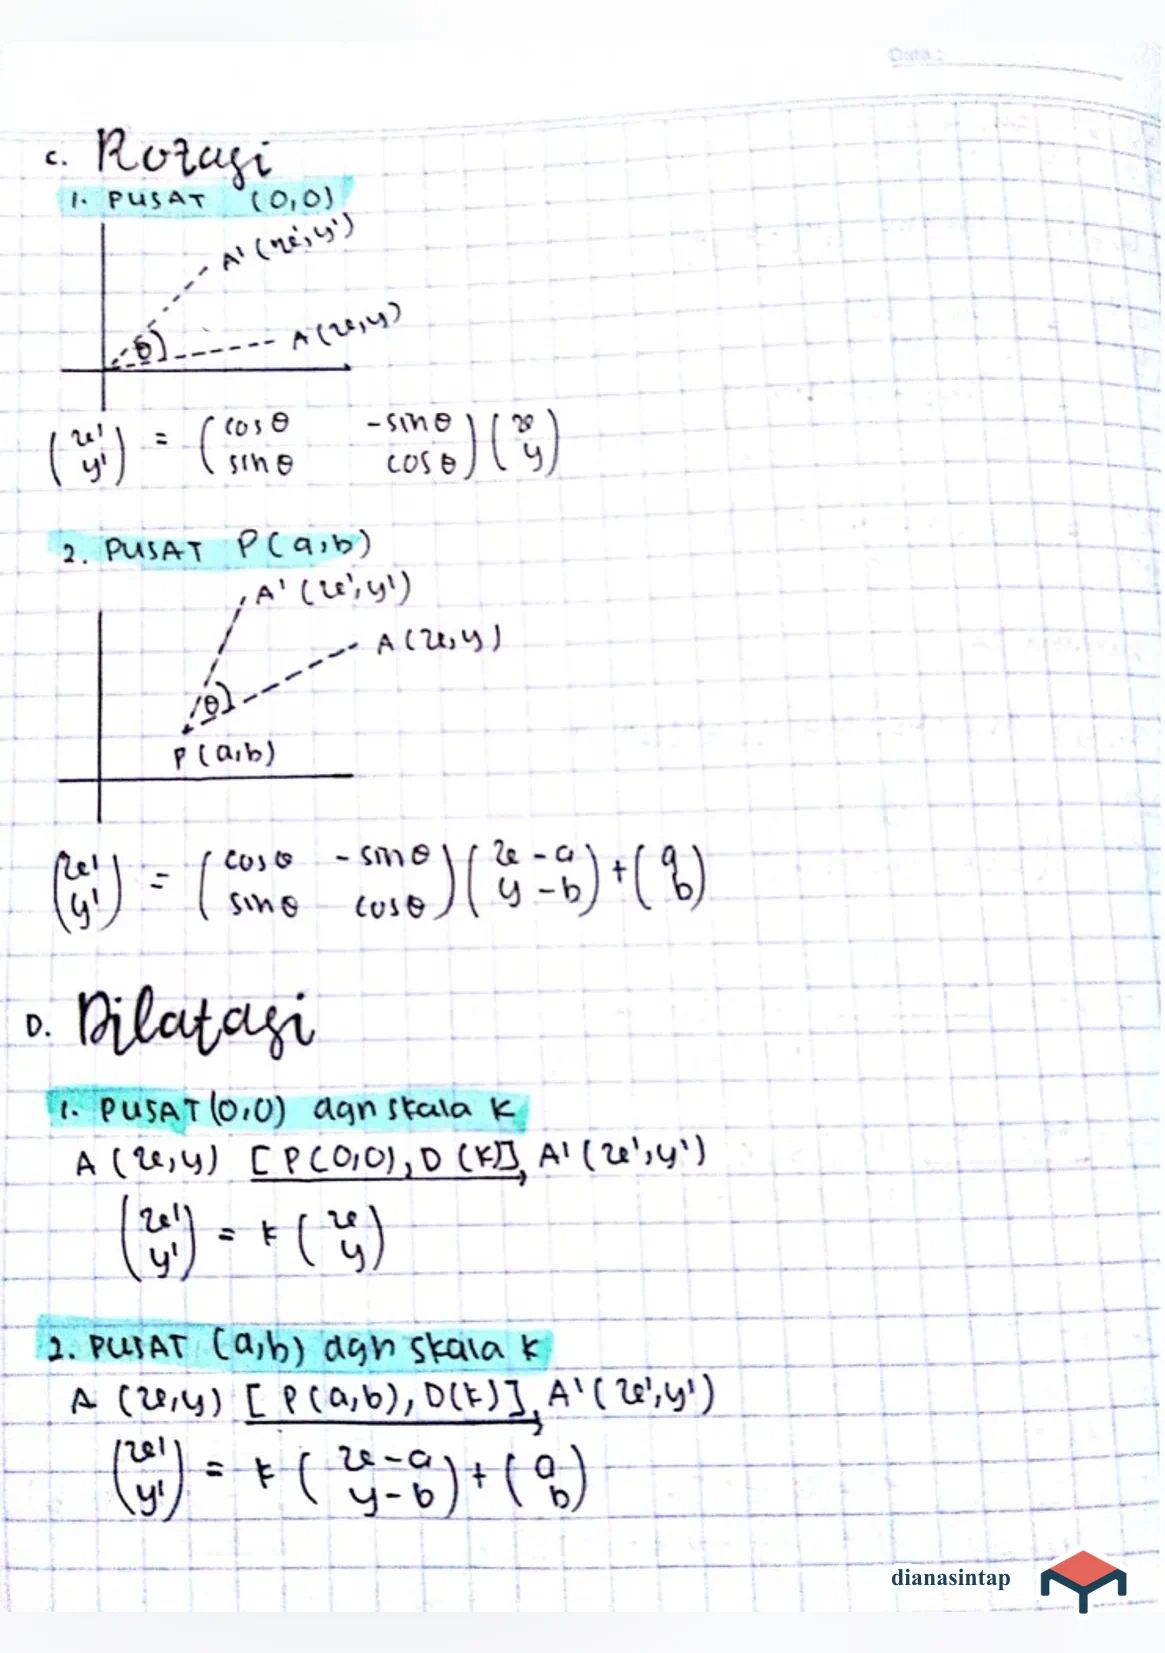 Date:
C. Rotasi
1. PUSAT (0,0)
A' (x',y')
A (x,y)
θ
(x' y') = (cos θ -sin θ sin θ cos θ) (x y)
2. PUSAT P(a,b)
A' (x',y')
A (x,y)
θ
P (a,b)
(x' y') = (cos θ -sin θ sin θ cos θ) (x-a y-b) + (a b)
D. Dilatasi
1. PUSAT (0,0) dgn skala k
A (x,y) [P(0,0), D (k)] A' (x',y')
(x' y') = k (x y)
2. PUSAT (a,b) dgn skala k
A (x,y) [P(a,b), D(k)] A' (x',y')
(x' y') = k (x-a y-b) + (a b)
dianasintap